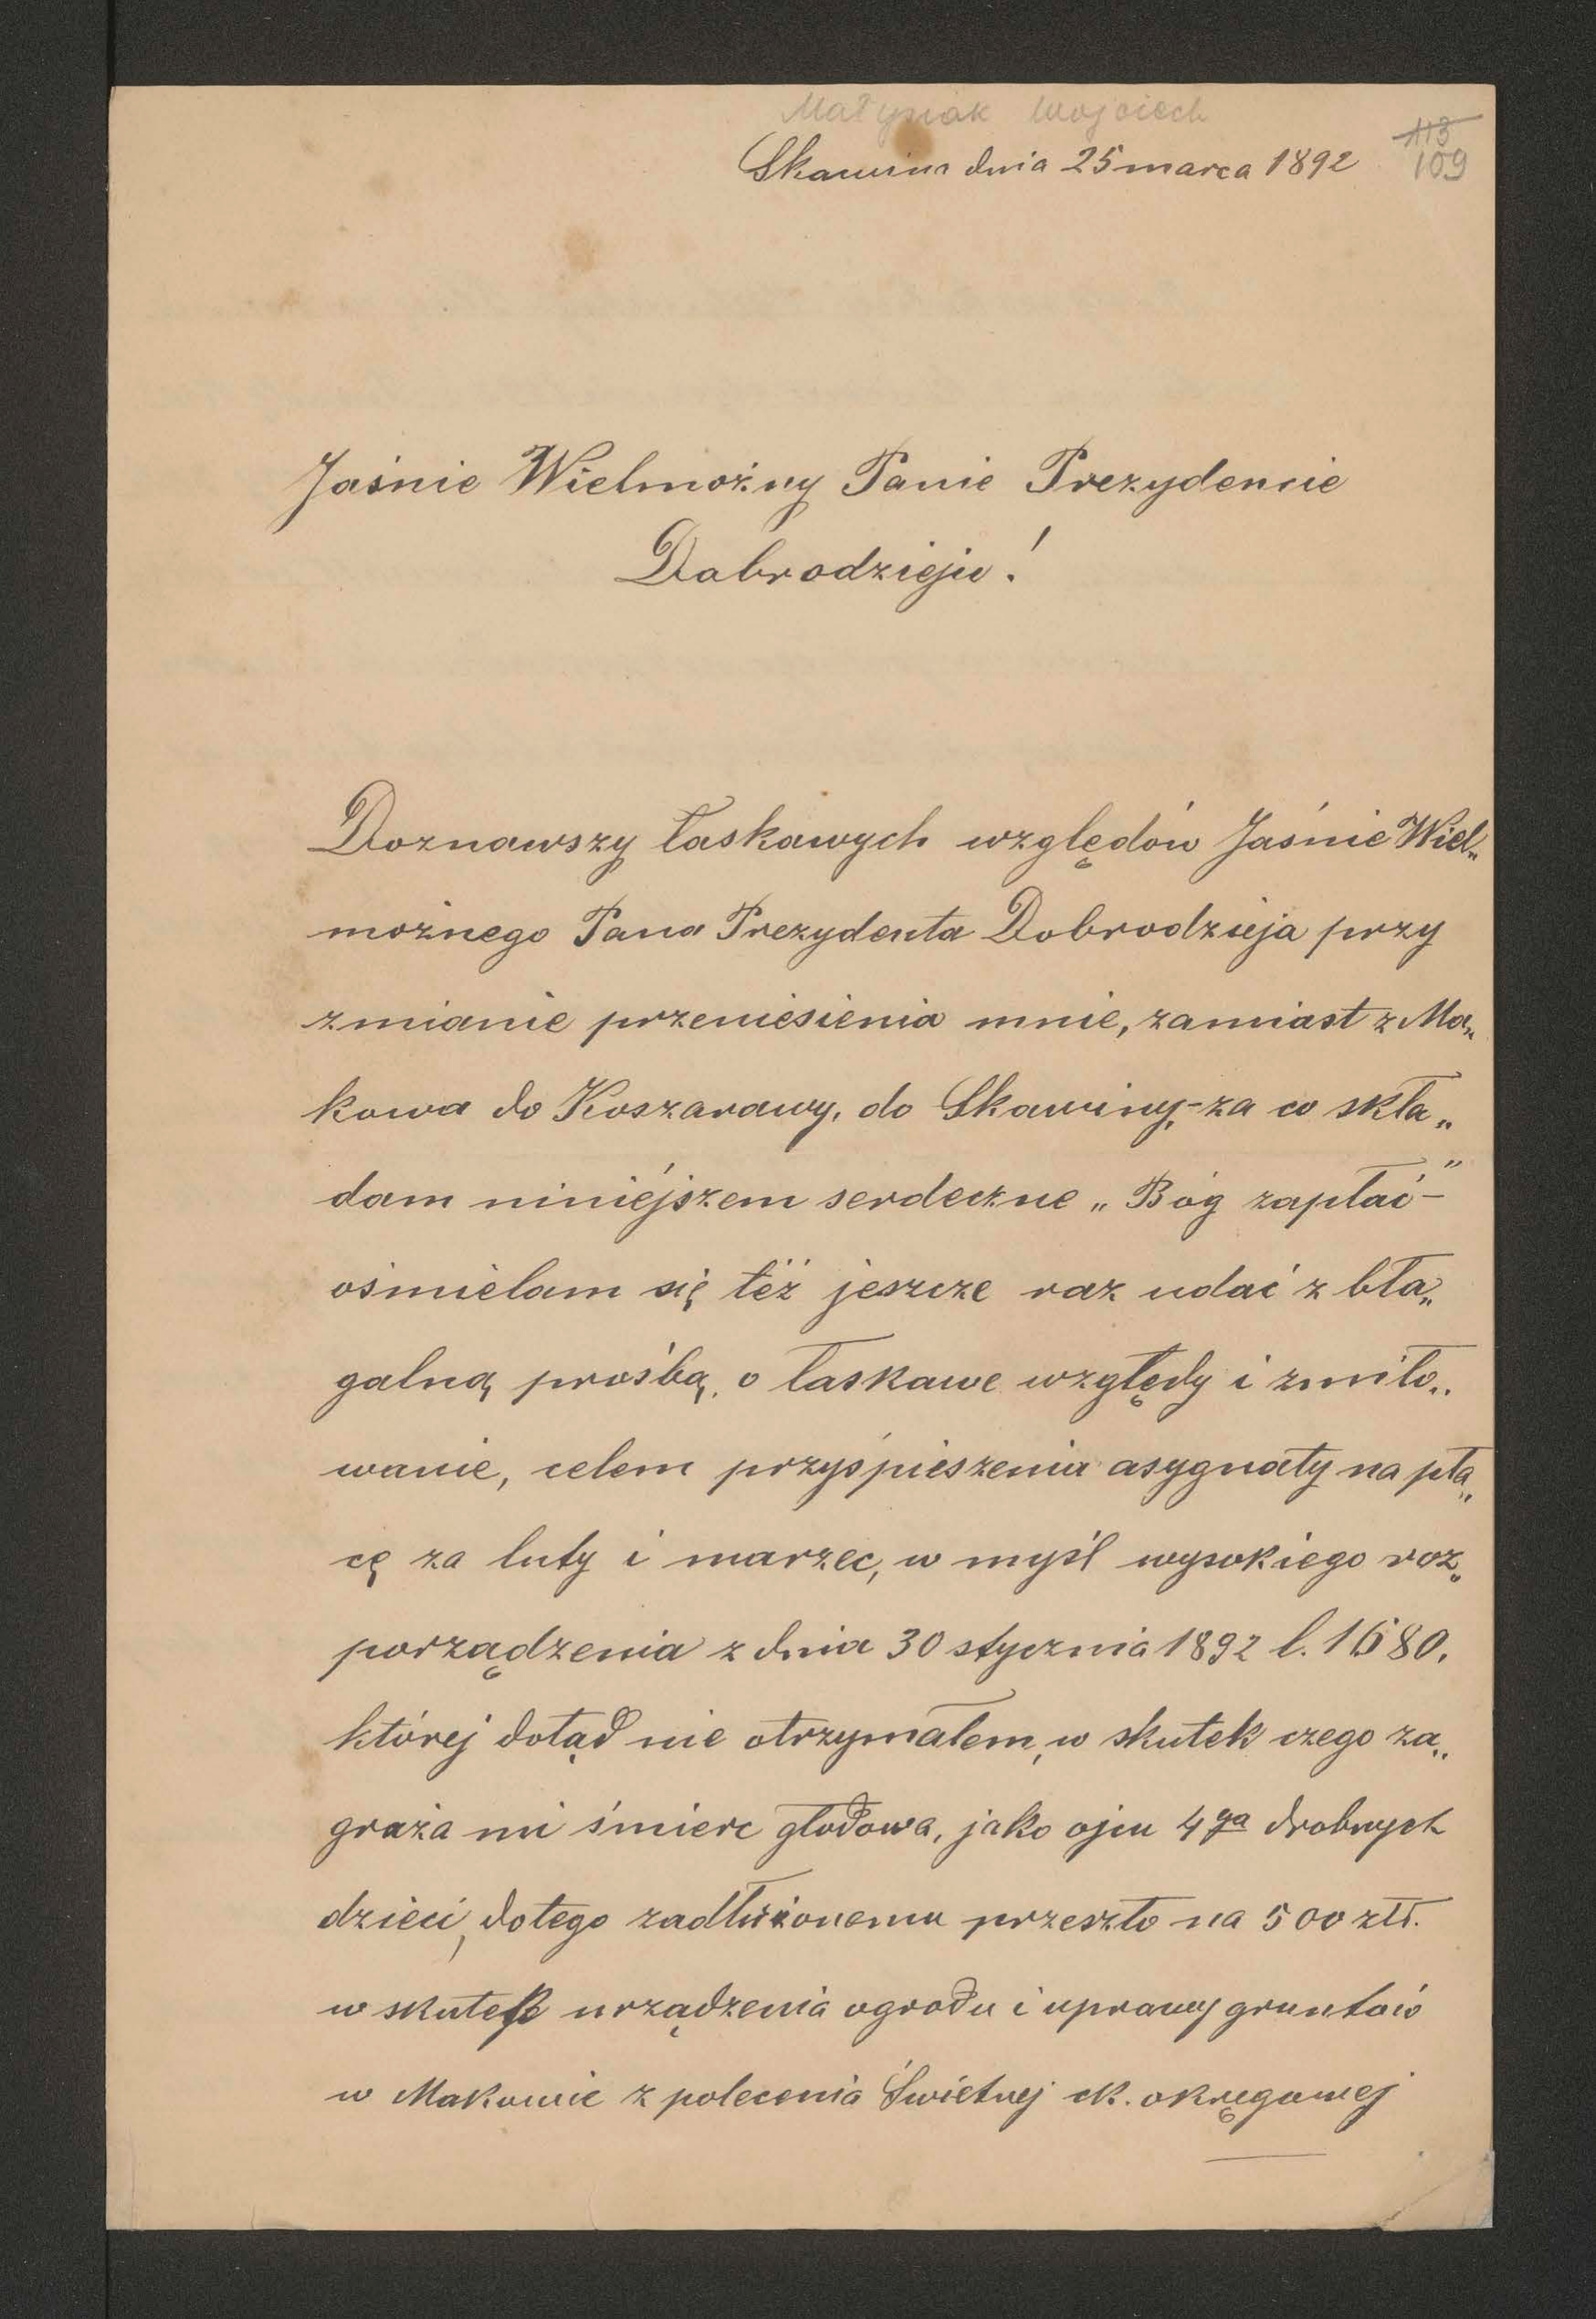 Małysiak Wojciech
113
Skawina dnia 25 marca 1892
109
Jaśnie Wielmożny Panie Prezydencie
Dobrodzieju!
Doznawszy łaskawych względów Jaśnie Wiel„
możnego Pana Prezydenta Dobrodzieja przy
zmianie przeniesienia mnie, zamiast z Ma„
kowa do Koszarawy, do Skawiny,- za co skła„
dam niniéjszem serdeczne „Bóg zapłać"-
ośmielam się téż jeszcze raz udać z bła„
galną prośbą, o łaskawe względy i zmiło„
wanie, celem przyśpieszenia asygnaty na pła„
cę za luty i marzec, w myśl wysokiego roz„
porządzenia z dnia 30 stycznia 1892 l. 1680,
której dotąd nie otrzymałem, w skutek czego za„
graża mi śmierc głodowa, jako ojcu 4ga drobnych
dzieci, dotego zadłużonemu przeszło na 500 złł.
w skutek urządzenia ogrodu i uprawy gruntów
w Makowie z polecenia Świetnej ck. okręgowej